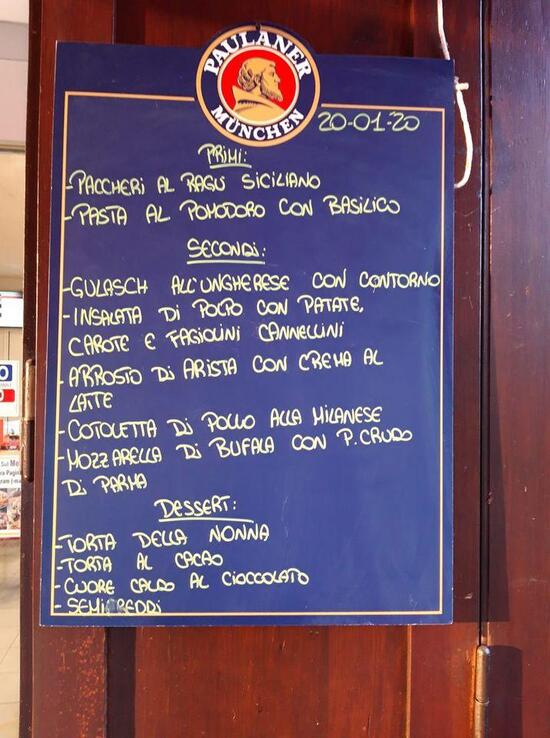 PAULANER
MÜNCHEN
20-01-20
PRIMI:
-PACCHERI AL RAGÙ SICILIANO
-PASTA AL POMODORO CON BASILICO
SECONDI:
-GULASCH ALL'UNGHERESE CON CONTORNO
-INSALATA DI POLPO CON PATATE,
CAROTE E FAGIOLINI CANNELLINI
-ARROSTO DI ARISTA CON CREMA AL
LATTE
-COTOLETTA DI POLLO ALLA MILANESE
-MOZZARELLA DI BUFALA CON P. CRUDO
DI PARMA
DESSERT:
-TORTA DELLA NONNA
-TORTA AL CACAO
-CUORE CALDO AL CIOCCOLATO
-SEMIFREDDI